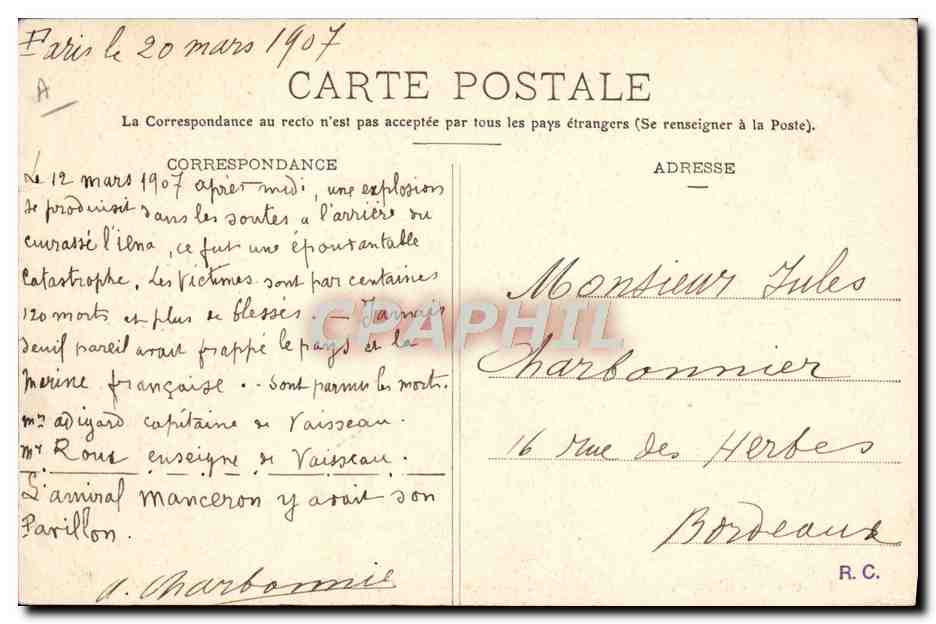 Paris le 20 mars 1907
A
CARTE POSTALE
La Correspondance au recto n'est pas acceptée par tous les pays étrangers (Se renseigner à la Poste).
CORRESPONDANCE
Le 12 mars 1907 après midi, une explosion
se produisit dans les soutes a l'arrière du
cuirassé l'iena, ce fut une épouvantable
catastrophe. Les victimes sont par centaines
120 morts et plus de blessés. — Jamais
deuil pareil avait frappé le pays et la
marine française. - Sont parmis les morts.
mr adigard capitaine de Vaisseau.
mr Roux enseigne de Vaisseau.
L'amiral Manceron y avait son
Pavillon.
a. Charbonnie
ADRESSE
Monsieur Jules
Charbonnier
16 rue des Herbes
Bordeaux
R. C.
CPAPHIL